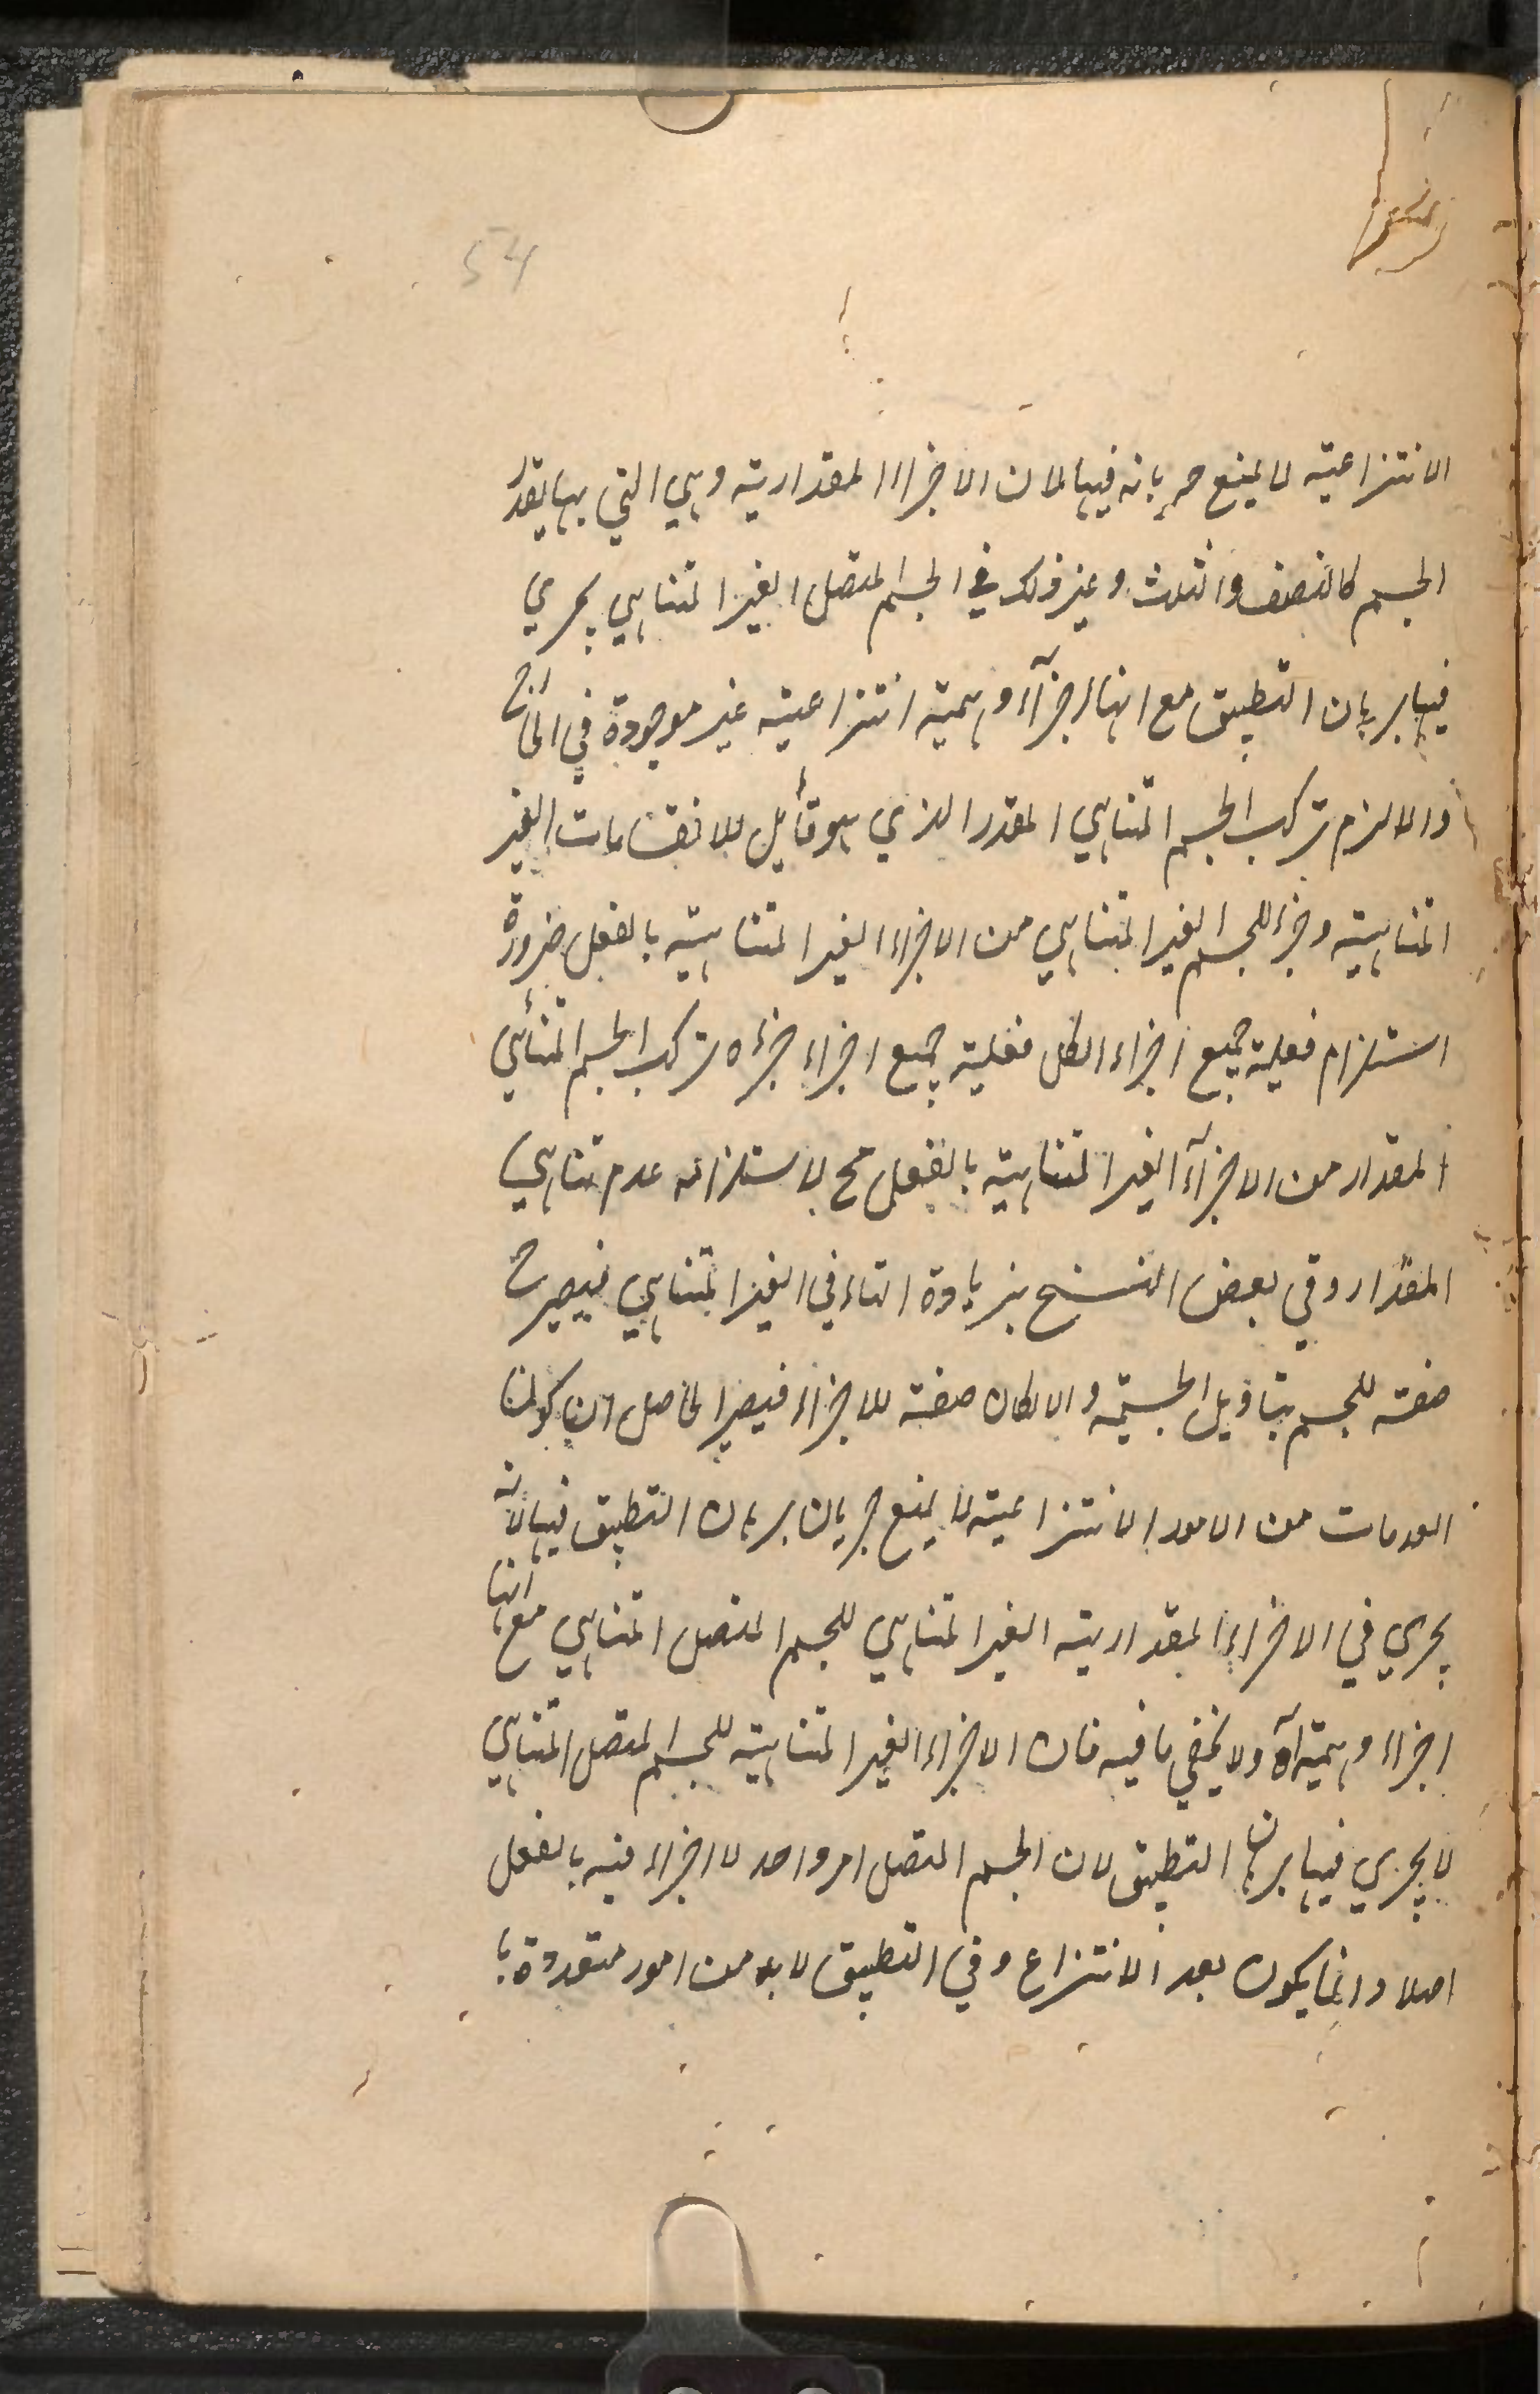 54
الانتزاعية لا يمنع جريانه فيها لان الاجزاء المقدارية وهي التي بها يقدر
الجسم كالنصف والثلث وغير ذلك في الجسم المتصل الغير المتناهي يجري
فيها برهان التطبيق مع انها اجزآء وهمية انتزاعية غير موجودة في الخارج
والا لزم تركب الجسم المتناهي المقدر الذي هو قابل للانقسامات الغير
المتناهية وجزء للجسم الغير المتناهي من الاجزاء الغير المتناهية بالفعل ضرورة
استلزام فعلية جميع اجزاء الكل فعلية جميع اجزاء جزءه وتركب الجسم المتناهي
المقدار من الاجزآء الغير المتناهية بالفعل مح لاستلزامه عدم تناهي
المقدار وفي بعض النسخ بزيادة التاء في الغير المتناهي فيصير ح
صفة للجسم بتاويل الجسمية والا لكان صفة للاجزاء فيصير الحاصل ان كون
العدمات من الامور الانتزاعية لا يمنع جريان برهان التطبيق فيها لانه
يجري في الاجزاء المقدارية الغير المتناهي للجسم المتصل المتناهي مع انها
اجزاء وهمية آه ولا يخفى ما فيه فان الاجزاء الغير المتناهية للجسم المتصل المتناهي
لا يجري فيها برهان التطبيق لان الجسم المتصل امر واحد لا اجزاء فيه بالفعل
اصلا وانما يكون بعد الانتزاع وفي التطبيق لا بد من امور متعددة